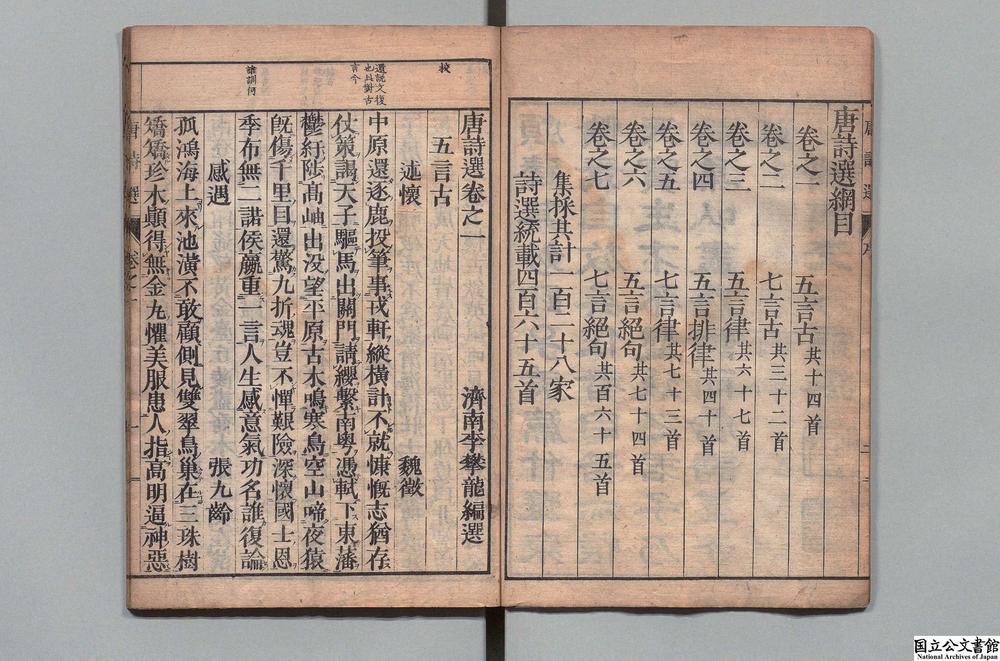 唐詩選綱目
卷之一 五言古共十四首
卷之二 七言古共三十二首
卷之三 五言律共六十七首
卷之四 五言排律共四十首
卷之五 七言律共七十三首
卷之六 五言絕句共七十四首
卷之七 七言絕句共百六十五首
集採共計一百二十八家
詩選統載四百六十五首
唐詩選卷之一
濟南李攀龍編選
五言古
述懷 魏徵
中原還逐鹿投筆事戎軒縱橫計不就慷慨志猶存
仗策謁天子驅馬出關門請纓繫南粵憑軾下東藩
鬱紆陟高岫出没望平原古木鳴寒鳥空山啼夜猿
既傷千里目還驚九折魂豈不憚艱險深懷國士恩
季布無二諾侯嬴重一言人生感意氣功名誰復論
感遇 張九齡
孤鴻海上來池潢不敢顧側見雙翠鳥巢在三珠樹
矯矯珍木顛得無金丸懼美服患人指高明逼神惡
唐詩選
国立公文書館
National Archives of Japan